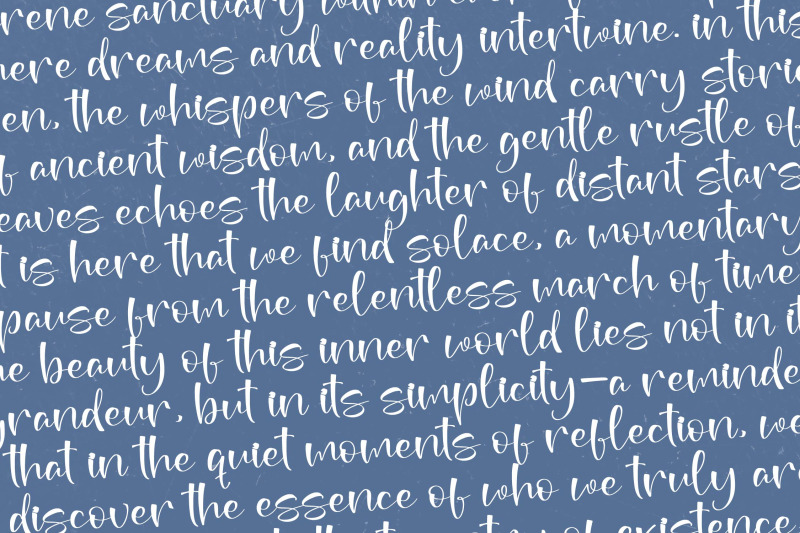 rene sanctuary within
here dreams and reality intertwine. in this
en, the whispers of the wind carry storie
f ancient wisdom, and the gentle rustle of
eaves echoes the laughter of distant stars
t is here that we find solace, a momentary
pause from the relentless march of time
he beauty of this inner world lies not in it
grandeur, but in its simplicity—a reminde
that in the quiet moments of reflection, we
discover the essence of who we truly are
of existence